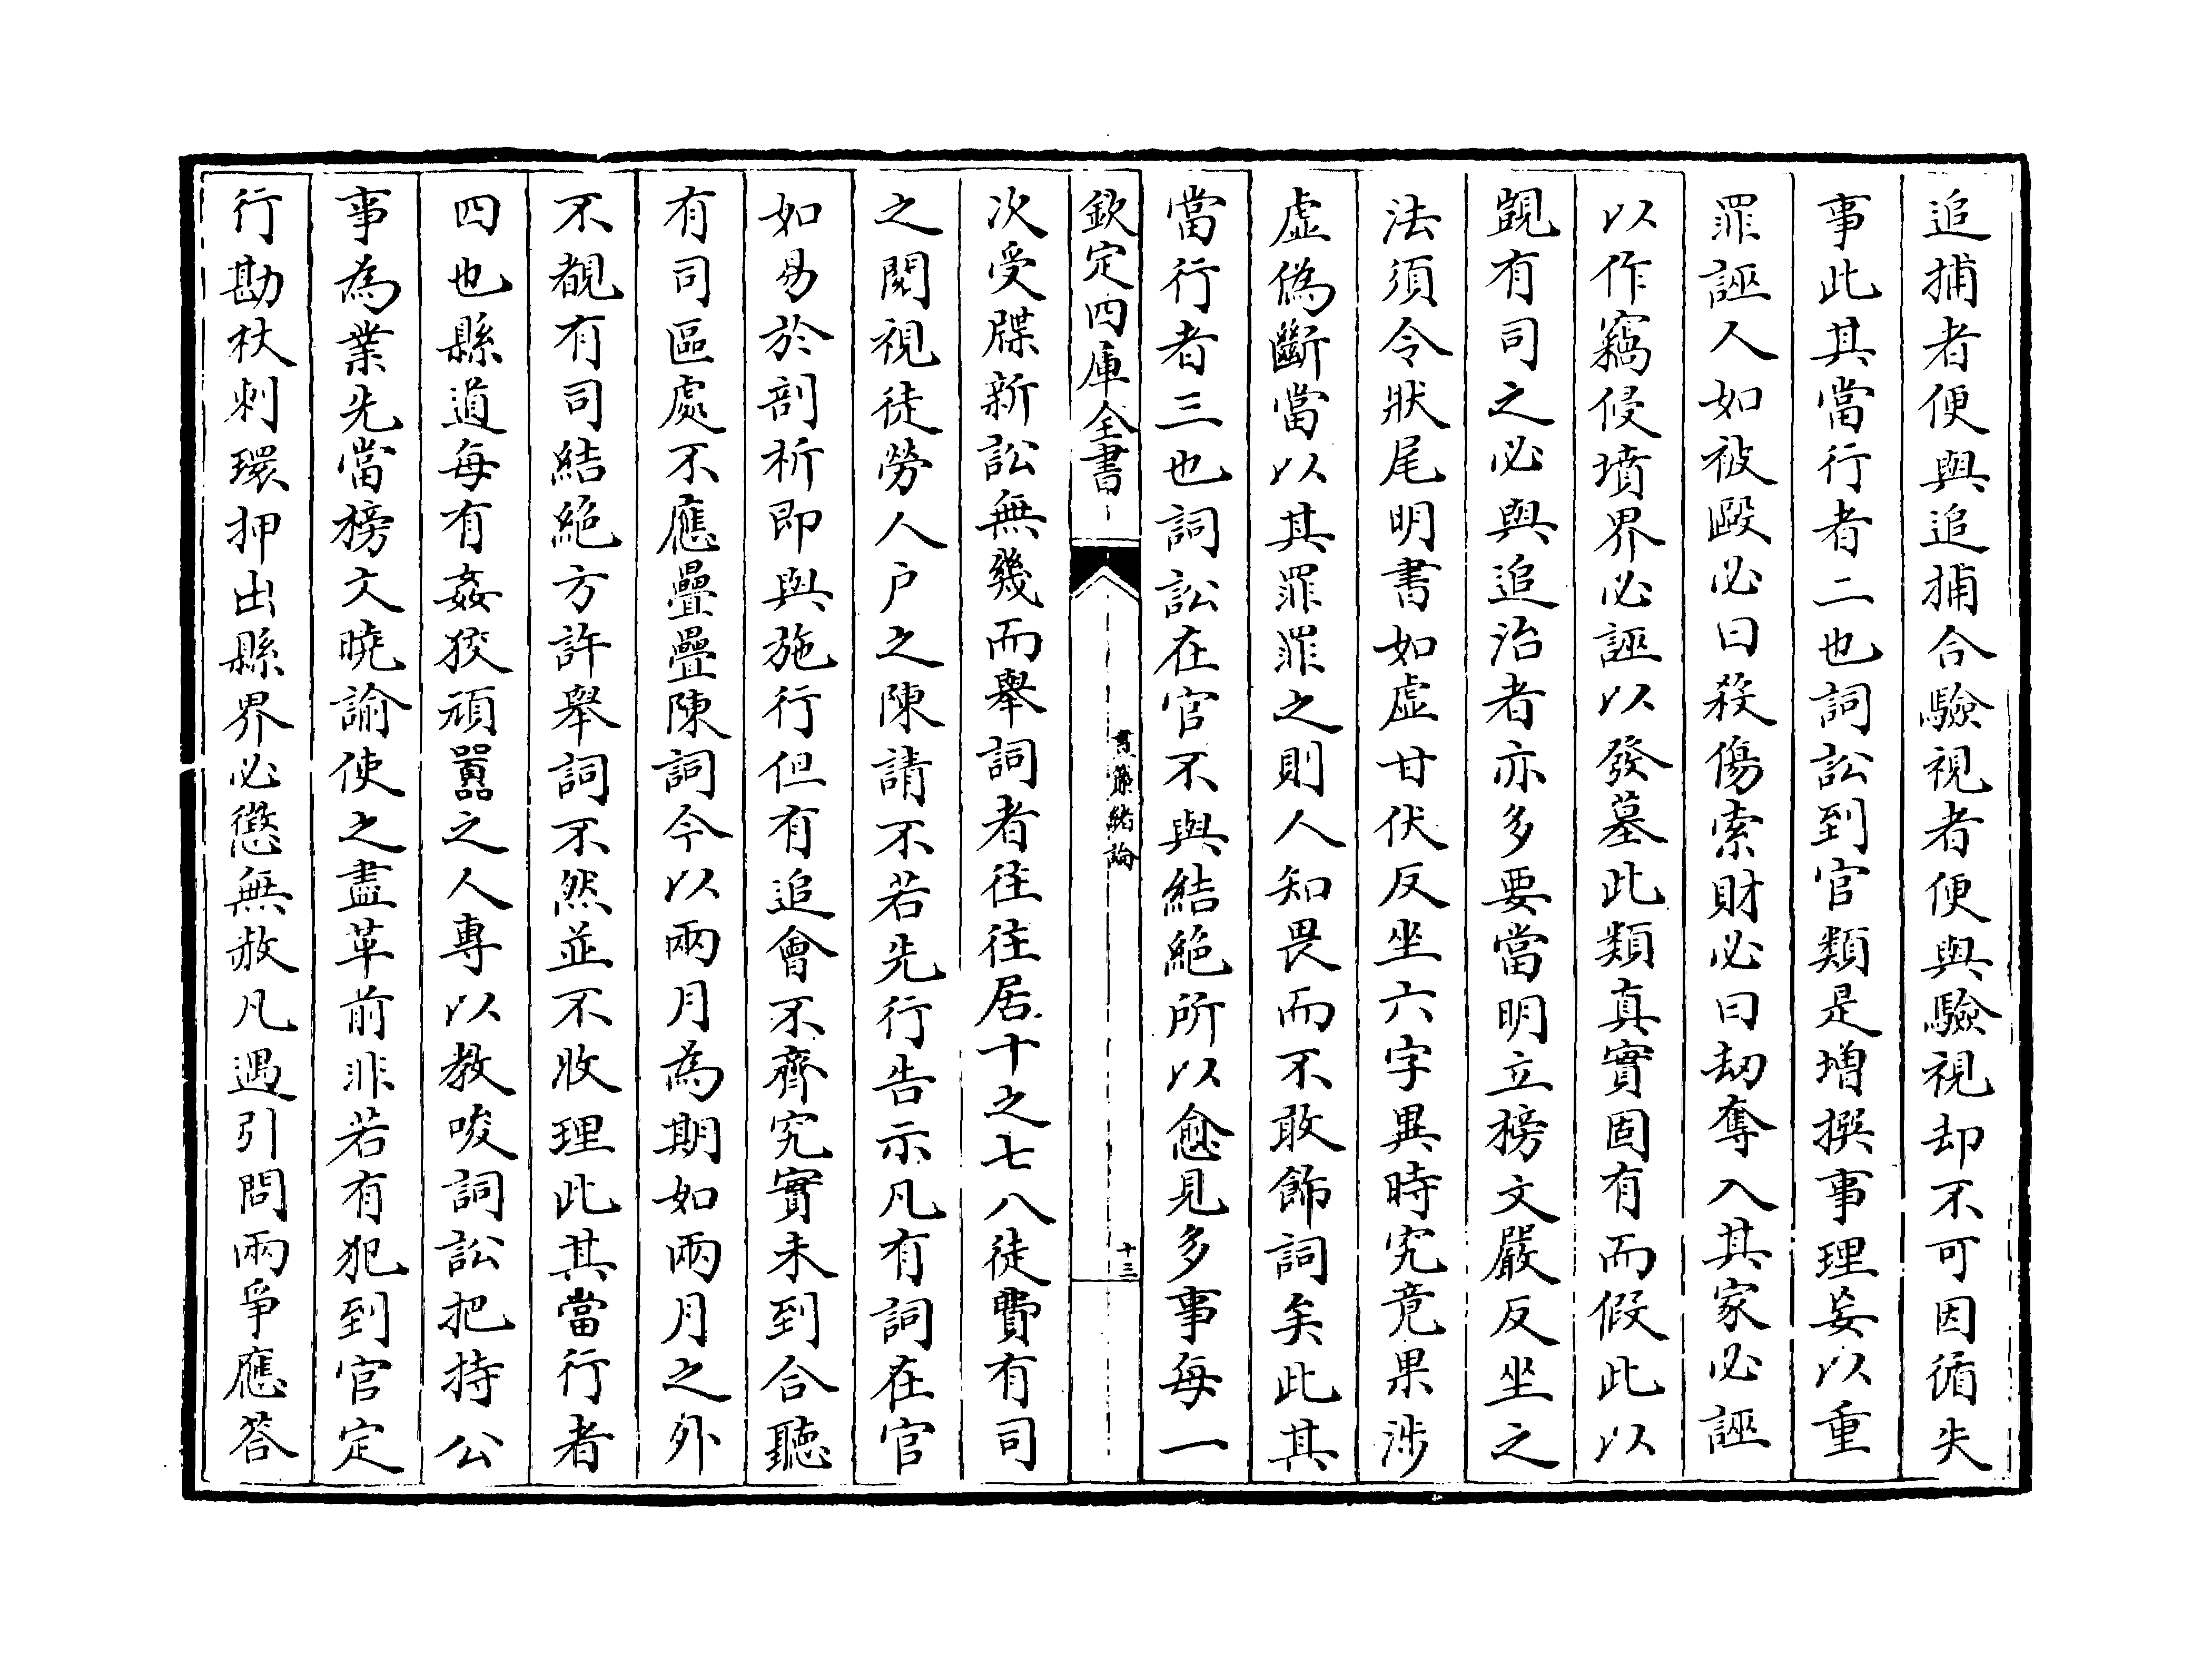 追捕者便與追捕合驗視者便與驗視却不可因循失
事此其當行者二也詞訟到官類是増撰事理妄以重
罪誣人如被毆必曰殺傷索財必曰刼奪入其家必誣
以作竊侵墳界必誣以發墓此類真實固有而假此以
覬有司之必與追治者亦多要當明立榜文嚴反坐之
法須令狀尾明書如虛甘伏反坐六字異時究竟果涉
虛偽斷當以其罪罪之則人知畏而不敢飾詞矣此其
當行者三也詞訟在官不與結絶所以愈見多事每一
欽定四庫全書
晝簾緒論
十三
次受牒新訟無幾而舉詞者往往居十之七八徒費有司
之閱視徒勞人户之陳請不若先行告示凡有詞在官
如易於剖析即與施行但有追會不齊究實未到合聽
有司區處不應疊疊陳詞今以兩月為期如兩月之外
不覩有司結絶方許舉詞不然並不收理此其當行者
四也縣道每有姦狡頑嚚之人專以教唆詞訟把持公
事為業先當榜文曉諭使之盡革前非若有犯到官定
行勘杖刺環押出縣界必懲無赦凡遇引問兩爭應答